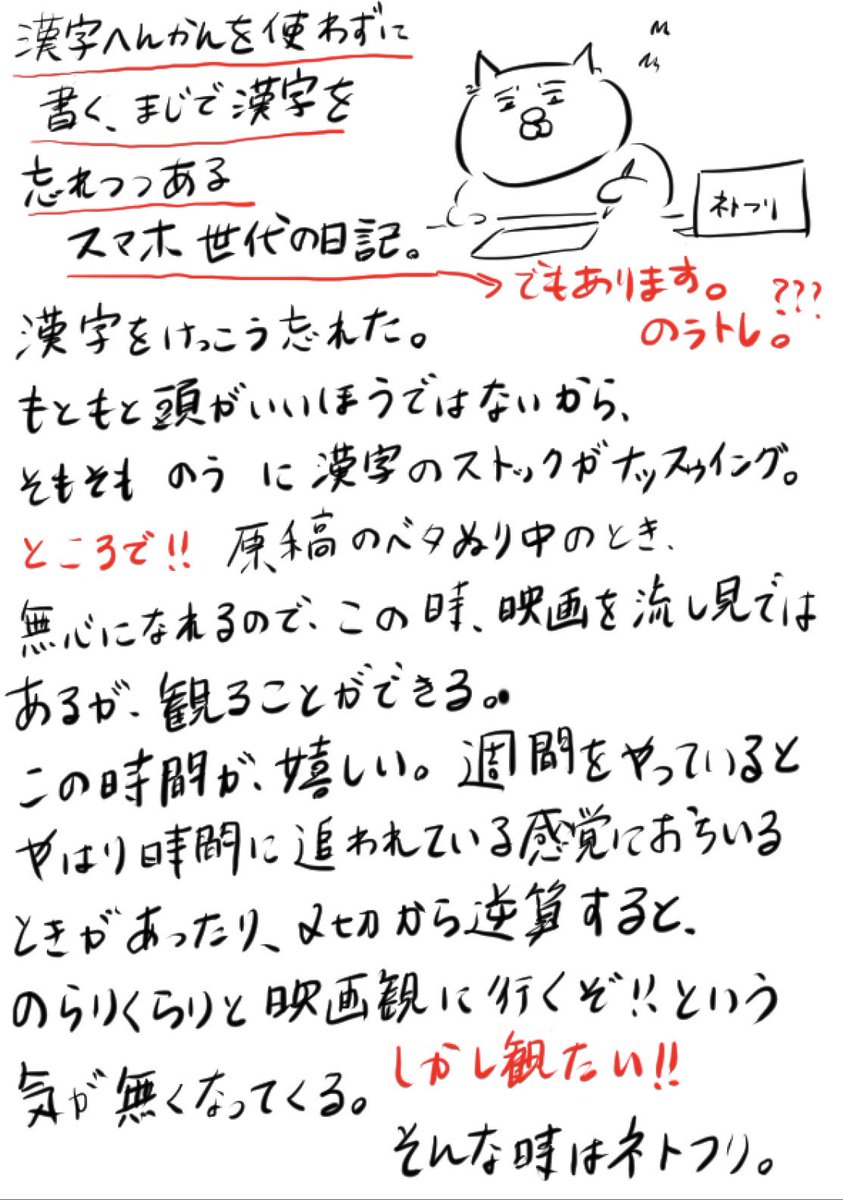 漢字へんかんを使わずに
書く、まじで漢字を
忘れつつある
スマホ世代の日記。
ネトフリ
でもあります。
???
のうトレ。
漢字をけっこう忘れた。
もともと頭がいいほうではないから、
そもそも のう に 漢字のストックがナッスゥイング。
ところで!! 原稿のベタぬり中のとき、
無心になれるので、この時、映画を流し見では
あるが、観ることができる。
この時間が、嬉しい。週間をやっていると
やはり時間に追われている感覚におちいる
ときがあったり、〆切から逆算すると、
のらりくらりと映画観に行くぞ!!という
気が無くなってくる。
しかし観たい!!
そんな時はネトフリ。